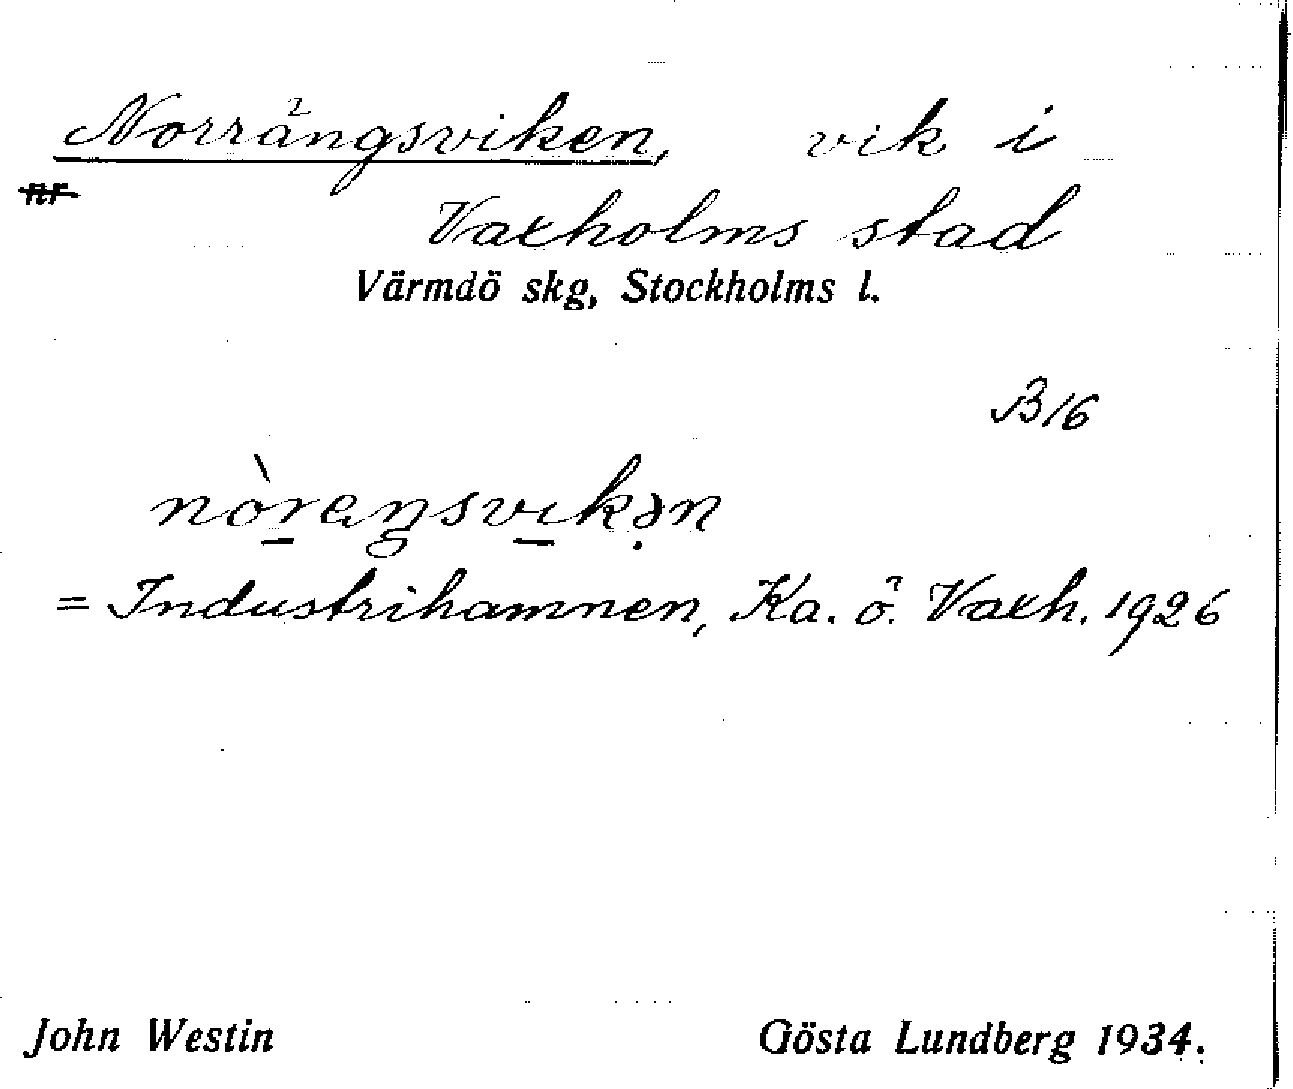 Norrängsviken, vik i
nr
Vaxholms stad
Värmdö skg, Stockholms l.
B16
nòreŋsvikən
= Industrihamnen, Ka. ö. Vaxh. 1926
John Westin Gösta Lundberg 1934.